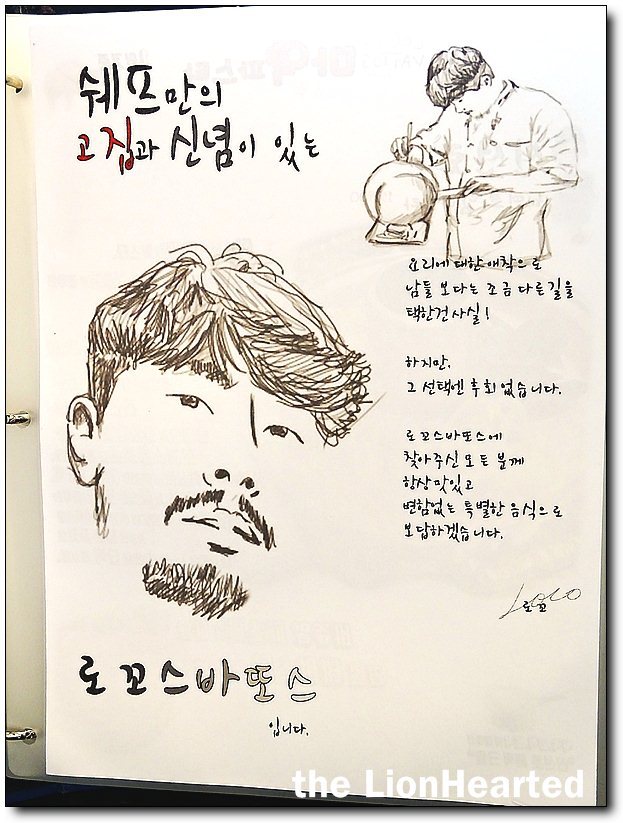 쉐프만의
고집과 신념이 있는
요리에 대한 애착으로
남들 보다는 조금 다른길을
택한건 사실!
하지만,
그 선택엔 후회 없습니다.
로꼬스바또스에
찾아주신 모든 분께
항상 맛있고
변함없는 특별한 음식으로
보답하겠습니다.
Loco
로꼬
로꼬스바또스
입니다.
the LionHearted